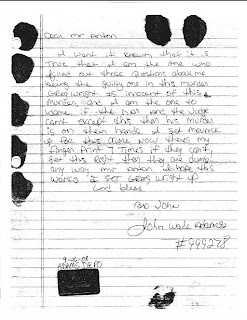 Dear mr Anton
I want it known that it is
True that I am the one who
filled out those Questions about me
being the guilty one in this murder
Greg wright is innocent of this
Murder, and I am the one to
blame if the and the Judge
cant except this then his murder
is on their hands. I set
up for this Now theres my
finger Print 7 Times if they cant
get this Right then they are dumb
any way mr anton I hope this
works I SET GREG WRIGHT UP
God bless
John
John Wade Adams
#999278
ADAMS DEPO